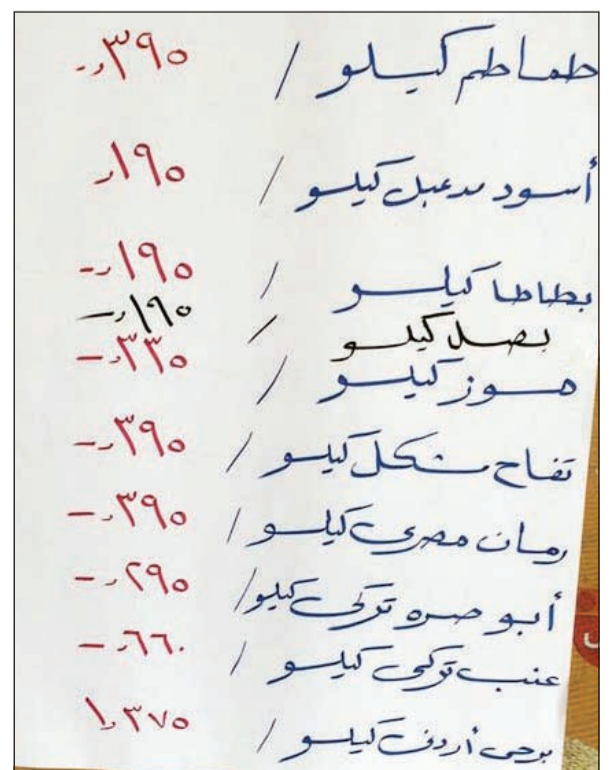 طماطم كيلو / ٣٩٠,-
أسود مدعبل كيلو / ١٩٠,
بطاطا كيلو / ١٩٠,-
بصل كيلو / ١٩٠,-
موز كيلو / ٣٣٠,-
تفاح شكل كيلو / ٣٩٠,-
رمان مصري كيلو / ٣٩٠,-
أبو صره تركي كيلو / ٢٩٠,-
عنب تركي كيلو / ٦٦٠,-
برحي أردني كيلو / ١,٣٧٥